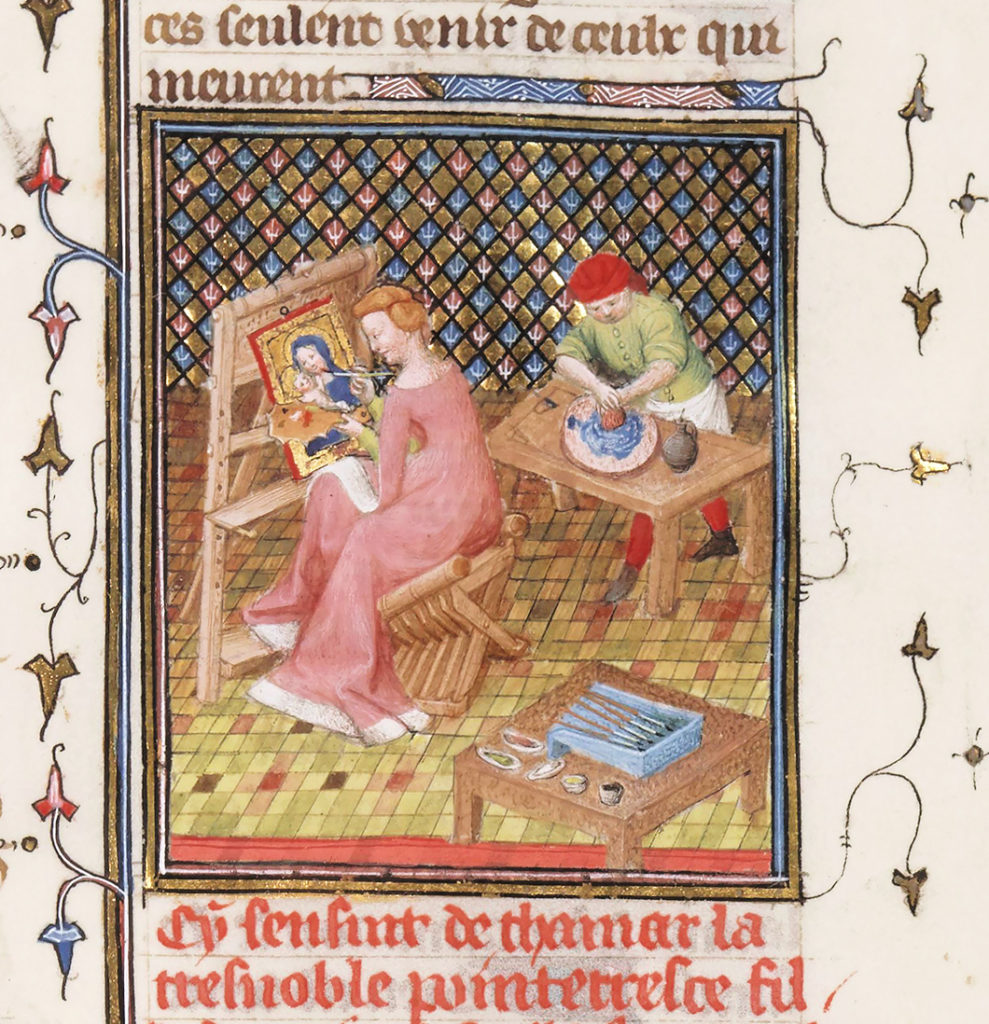 ces seulent venir de ceulx qui
meurent
Cy sensuit de thamar la
tresnoble pointerresce fil